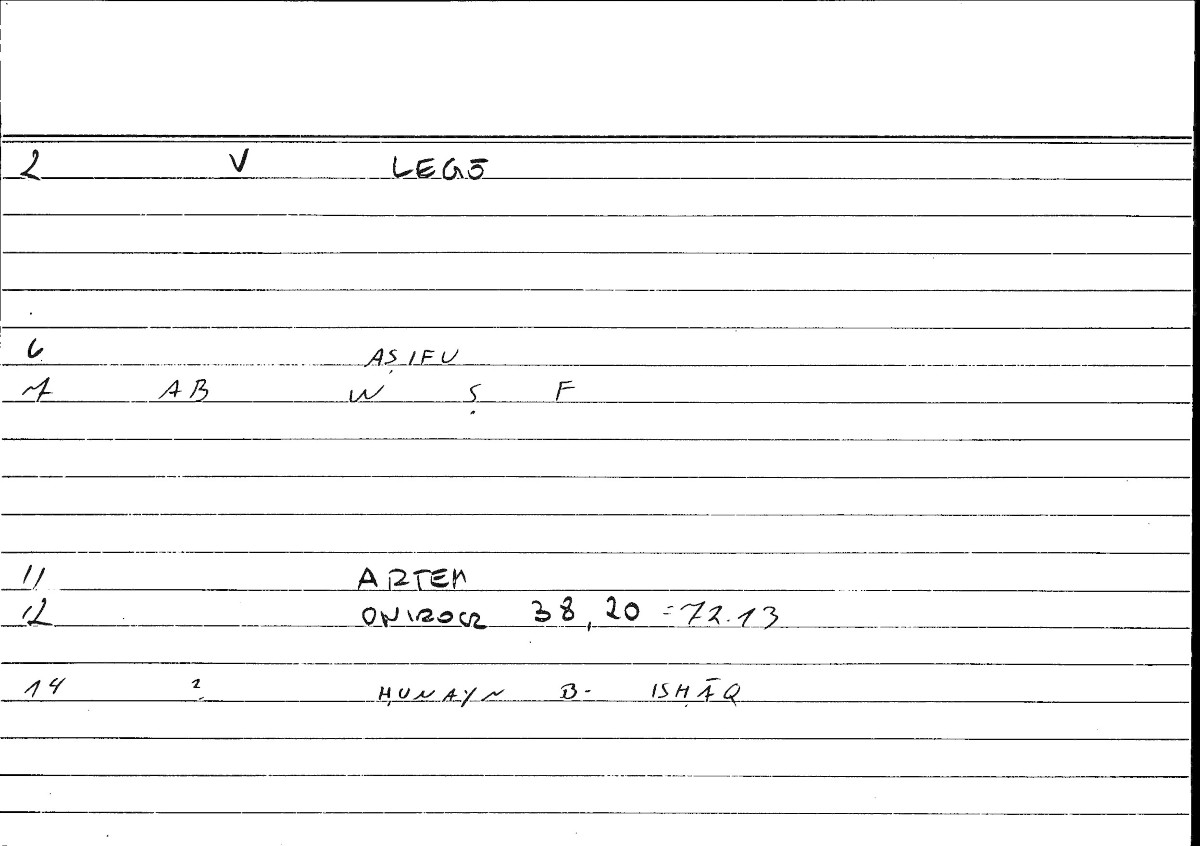 2 V LEGŌ
6 AṢIFU
7 AB W Ṣ F
11 ARTEM
12 ONIROCR 38,20 =72.13
14 ? ḤUNAYN B- ISḤĀQ